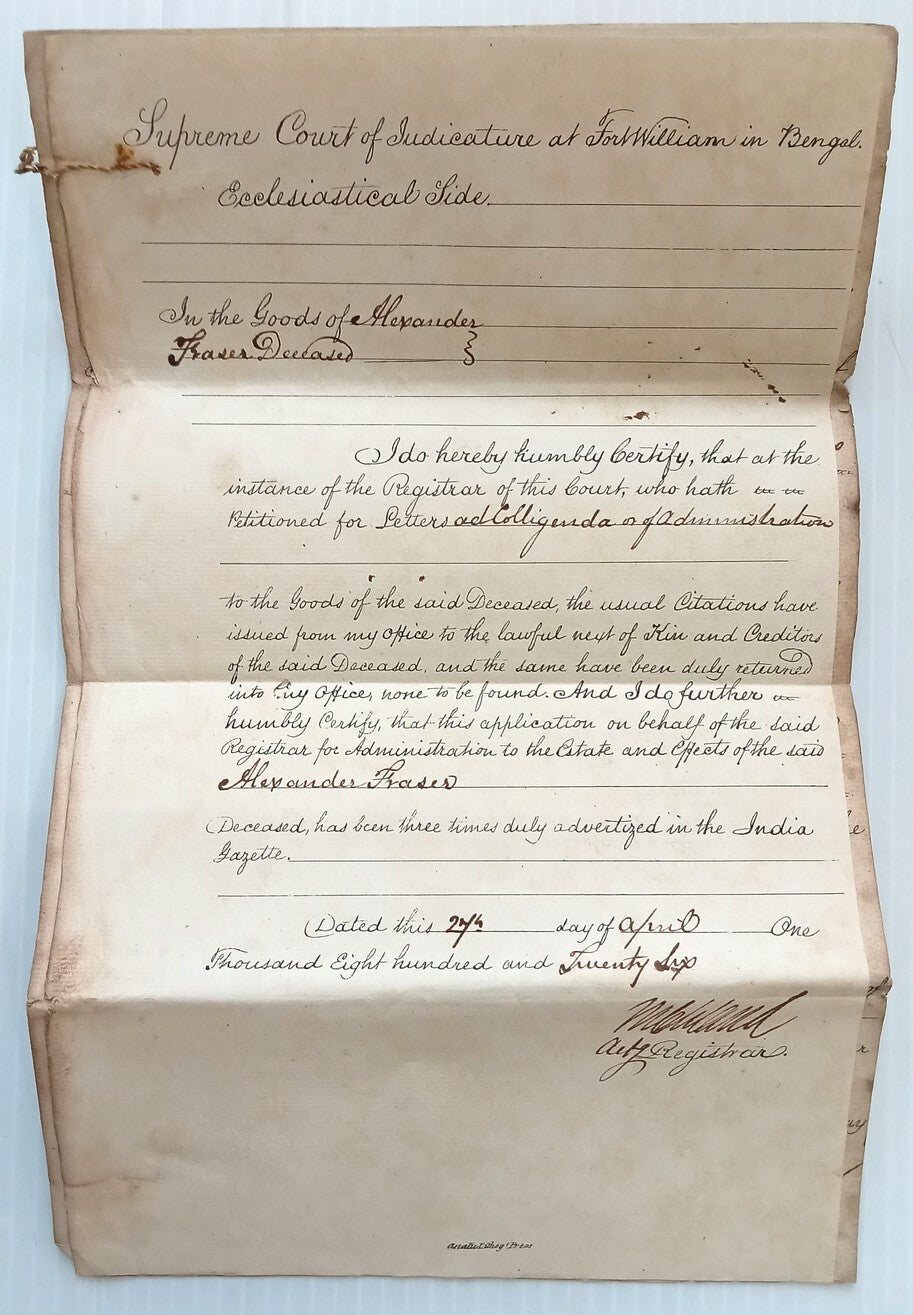 Supreme Court of Judicature at Fort William in Bengal.
Ecclesiastical Side.
In the Goods of Alexander
Fraser Deceased
I do hereby humbly Certify, that at the
instance of the Registrar of this Court, who hath
Petitioned for Letters ad Colligenda or of Administration
to the Goods of the said Deceased, the usual Citations have
issued from my Office to the lawful next of Kin and Creditors
of the said Deceased, and the same have been duly returned
into my Office, none to be found. And I do further
humbly Certify, that this application on behalf of the said
Registrar for Administration to the Estate and Effects of the said
Alexander Fraser
Deceased, has been three times duly advertized in the India
Gazette.
Dated this 27th day of April One
Thousand Eight hundred and Twenty Six
Actg Registrar.
Press